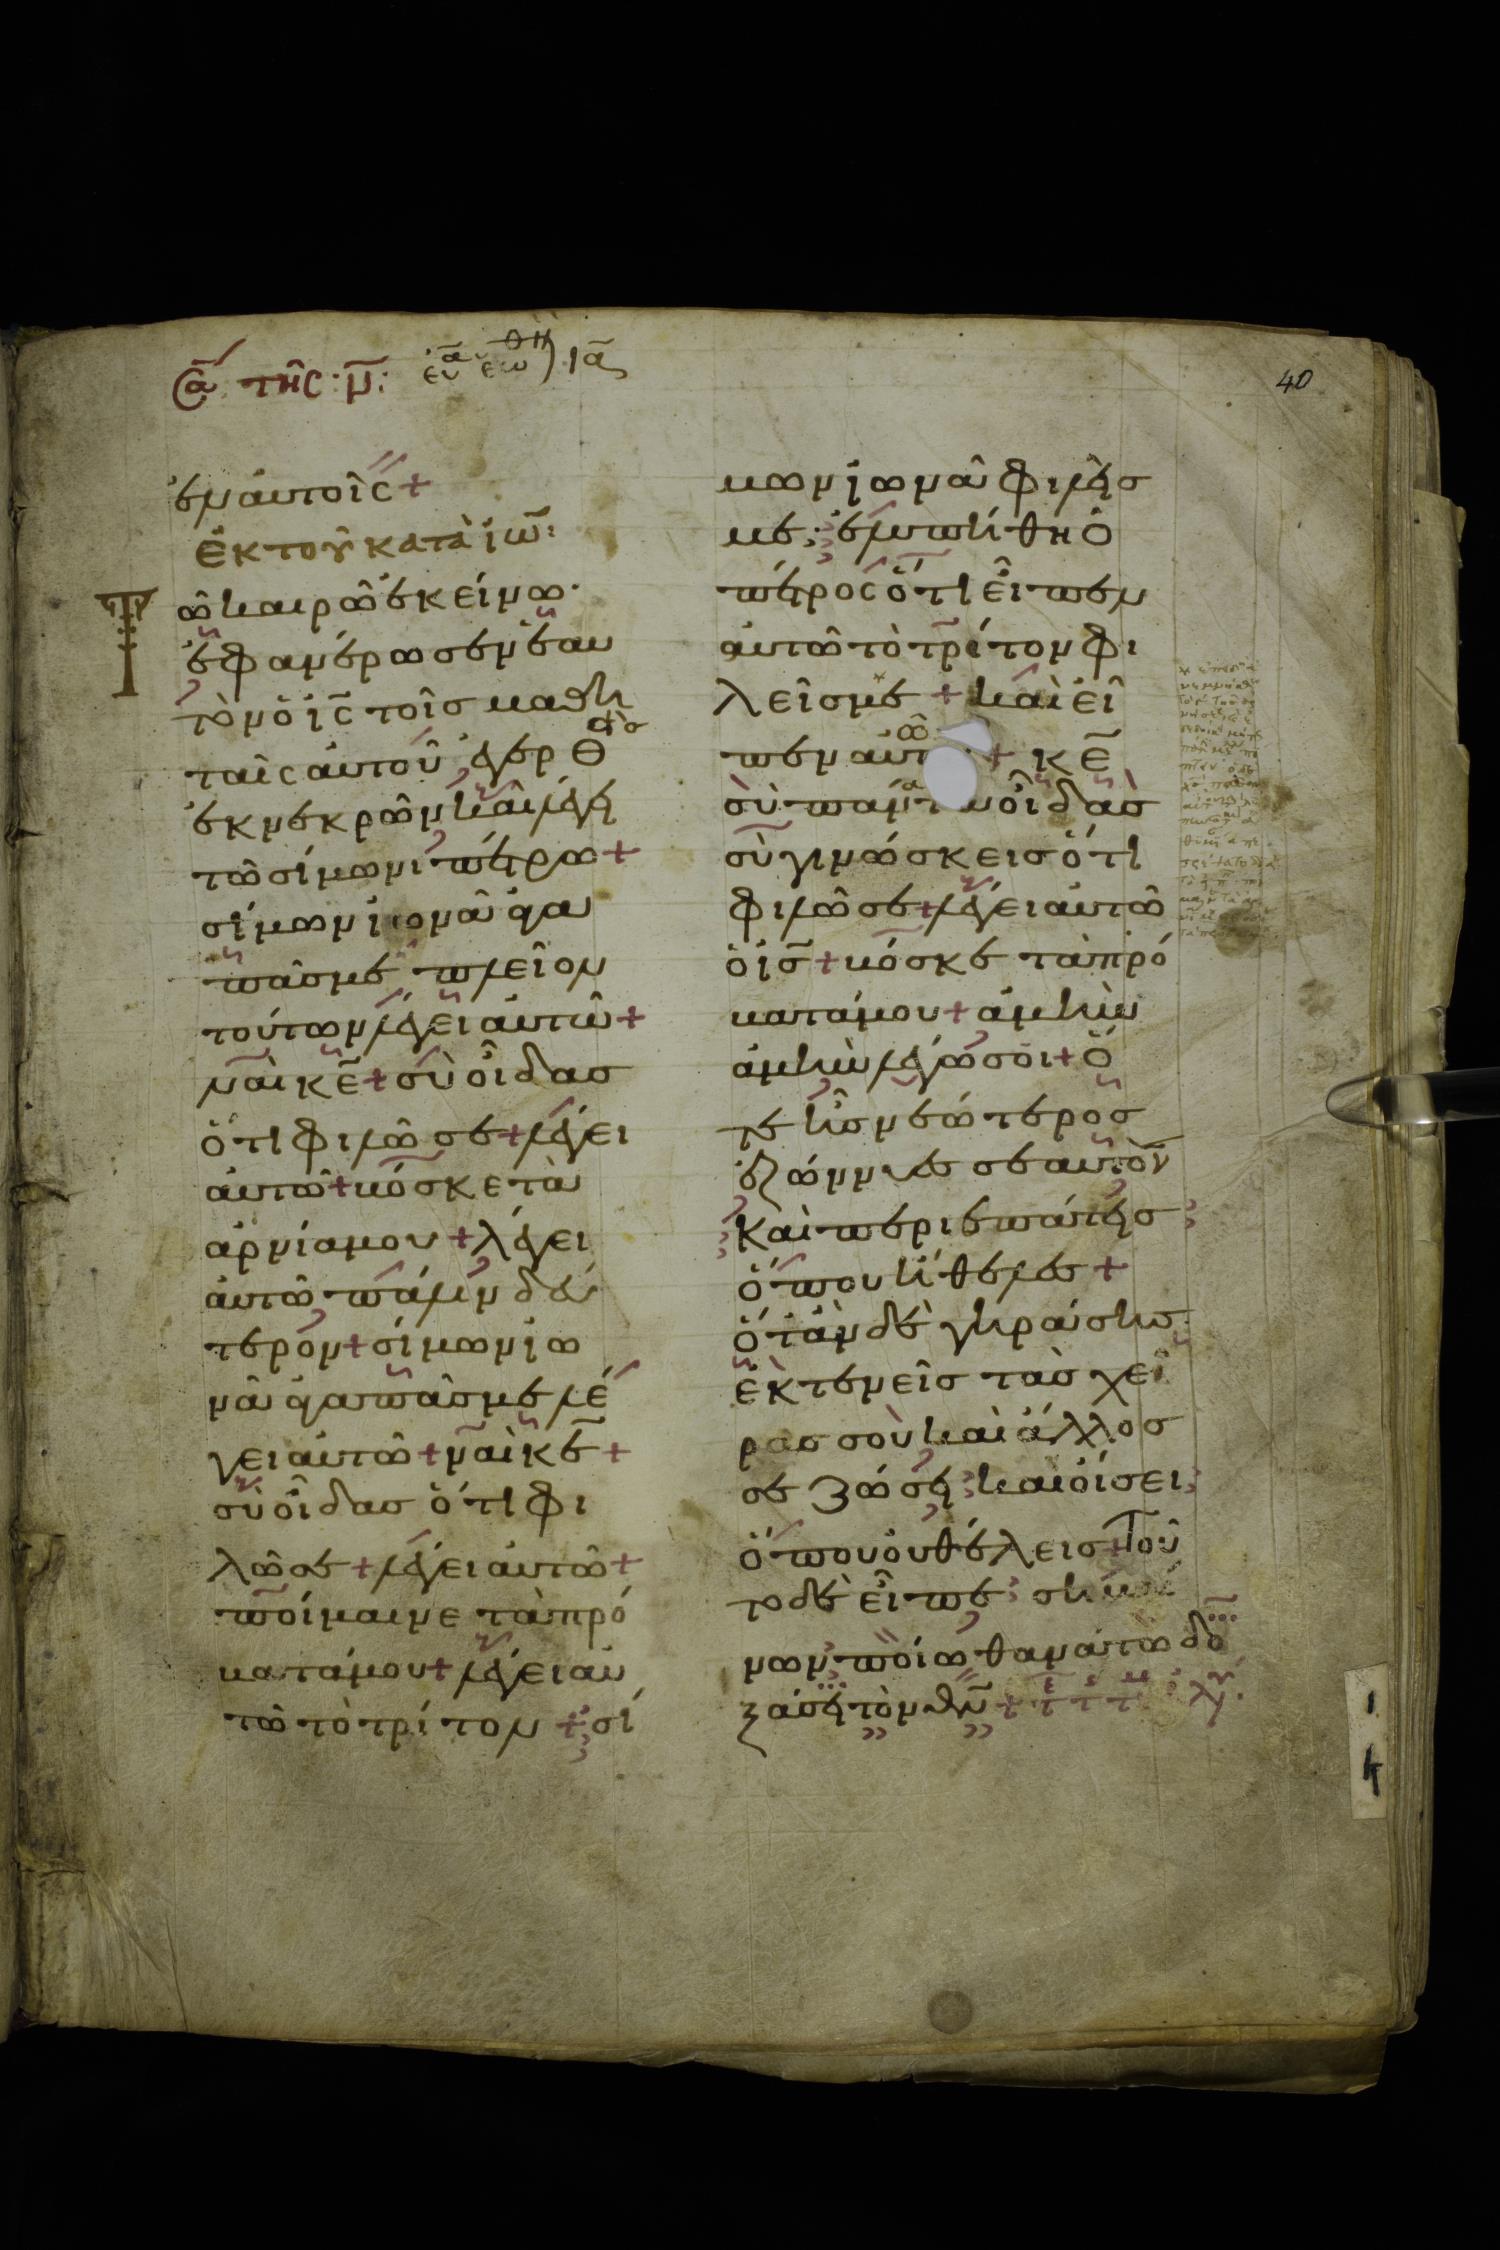 τῆς: μ̅:
40
ἐν αὐτοῖς +
ἐκ τοῦ κατὰ ἰω̅:
Τῶ καιρῶ ἐκείνω·
ἐφανέρωσεν ἑαυ
τὸν ὁ ι̅ς̅ τοῖς μαθη
ταῖς αὐτοῦ ἐγερθεὶς
ἐκ νεκρῶν καὶ λέγει
τῶ σίμωνι πέτρω +
σίμων ἰωνᾶ ἀγα
πᾶς με πλεῖον
τούτων λέγει αὐτῶ +
ναὶ κ̅ε̅ + σὺ οἶδας
ὅτι φιλῶ σε + λέγει
αὐτῶ + βόσκε τὰ
ἀρνία μου + λέγει
αὐτῶ πάλιν δεύ
τερον + σίμων ἰω
νᾶ ἀγαπᾶς με λέ
γει αὐτῶ + ναὶ κ̅ε̅ +
σὺ οἶδας ὅτι φι
λῶ σε + λέγει αὐτῶ +
ποίμαινε τὰ πρό
βατά μου + λέγει αὐ
τῶ τὸ τρίτον + σί
μων ἰωνᾶ φιλεῖς
με; ἐλυπήθη ὁ
πέτρος ὅτι εἶπεν
αὐτῶ τὸ τρίτον φι
λεῖς με + καὶ εἶ
πεν αὐτῶ + κ̅ε̅
σὺ πάντα οἶδας
σὺ γινώσκεις ὅτι
φιλῶ σε + λέγει αὐτῶ
ὁ ι̅ς̅ + βόσκε τὰ πρό
βατά μου + ἀμὴν
ἀμὴν λέγω σοι + ὅ
τε ἦς νεώτερος
ἐζώννυες σεαυτὸν
καὶ περιεπάτεις
ὅπου ἤθελες +
ὅταν δὲ γηράσης
ἐκτενεῖς τὰς χεῖ
ρας σοὺ καὶ ἄλλος
σε ζώσει καὶ οἴσει
ὅπου οὐ θέλεις + Τοῦ
το δὲ εἶπε σημαί
νων ποίω θανάτω δο
ξάσει τὸν θ̅ν̅ +